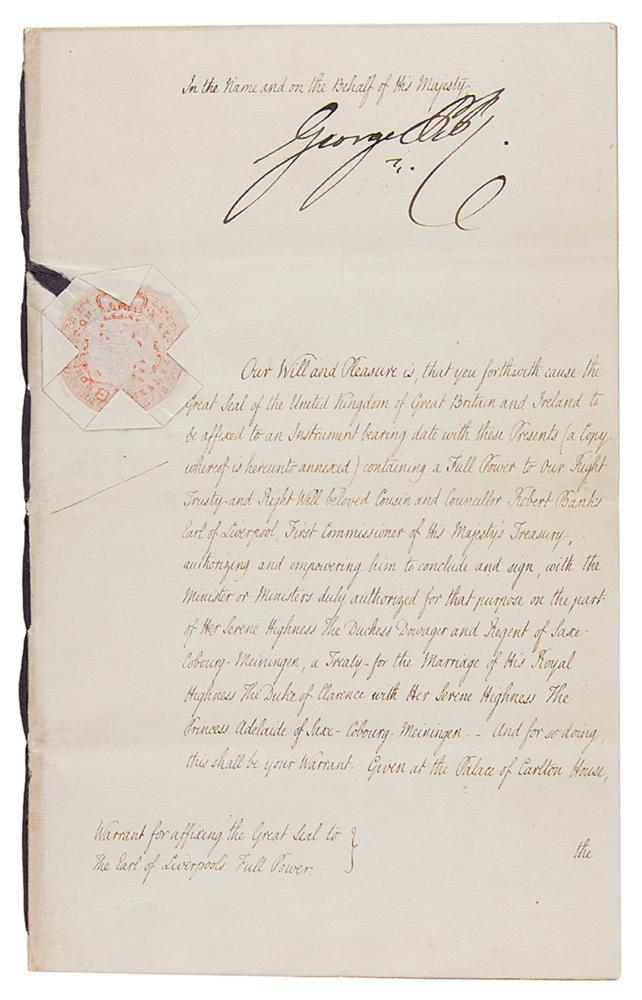 In the Name and on the Behalf of His Majesty
George P R
Our Will and Pleasure is, that you forthwith cause the
Great Seal of the United Kingdom of Great Britain and Ireland to
be affixed to an Instrument bearing date with these Presents (a Copy
whereof is hereunto annexed) containing a Full Power to Our Right
Trusty and Right Well beloved Cousin and Councillor Robert Banks
Earl of Liverpool, First Commissioner of His Majesty's Treasury,
authorizing and empowering him to conclude and sign, with the
Minister or Ministers duly authorized for that purpose on the part
of Her Serene Highness The Duchess Dowager and Regent of Saxe-
Cobourg-Meiningen, a Treaty for the Marriage of His Royal
Highness The Duke of Clarence with Her Serene Highness The
Princess Adelaide of Saxe-Cobourg-Meiningen. - And for so doing,
this shall be your Warrant. Given at the Palace of Carlton House,
the
Warrant for affixing the Great Seal to
The Earl of Liverpool's Full Power.